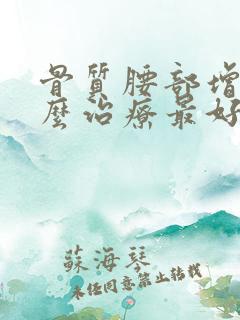 骨質腰部增
麼治療最好
蘇海琴
未經同意禁止轉載